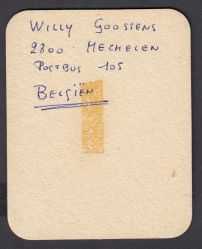 WILLY GOOSSENS
2800 MECHELEN
POSTBUS 105
BELGIËN